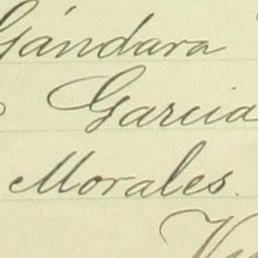 Gándara
Garcia
Morales.